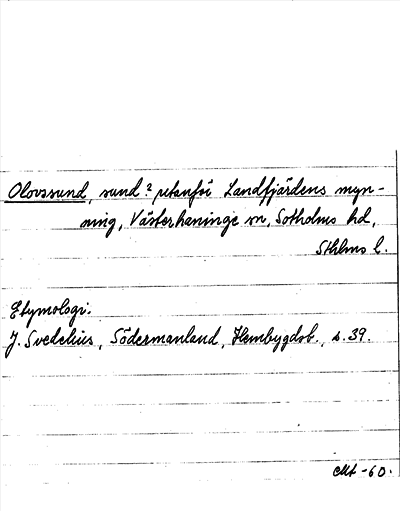 Olovssund, sund? utanför Landfjärdens myn-
ning, Västerhaninge sn, Sotholms hd,
Sthlms l.
Etymologi:
J. Svedelius, Södermanland, Hembygdsb., s. 39.
-60.